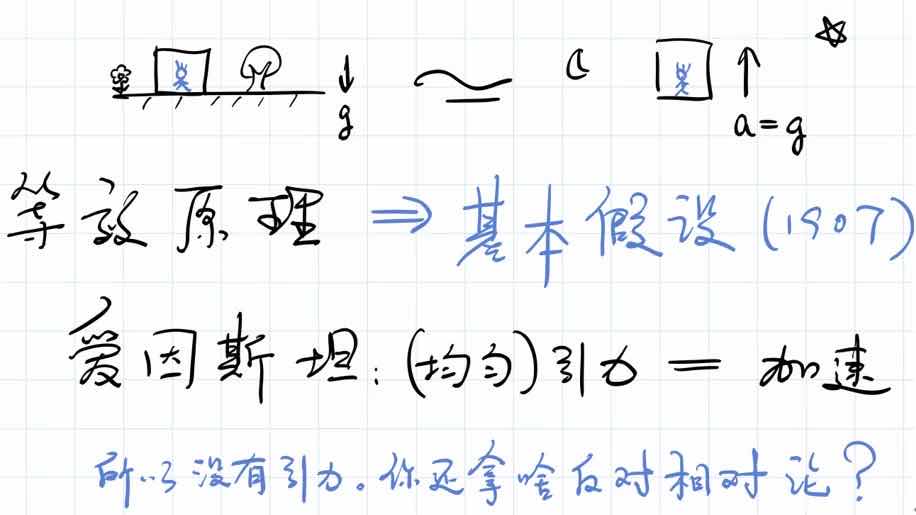 g
a=g
等效原理 ⇒ 基本假设 (1907)
爱因斯坦: (均匀) 引力 = 加速
所以没有引力。你还拿啥反对相对论?